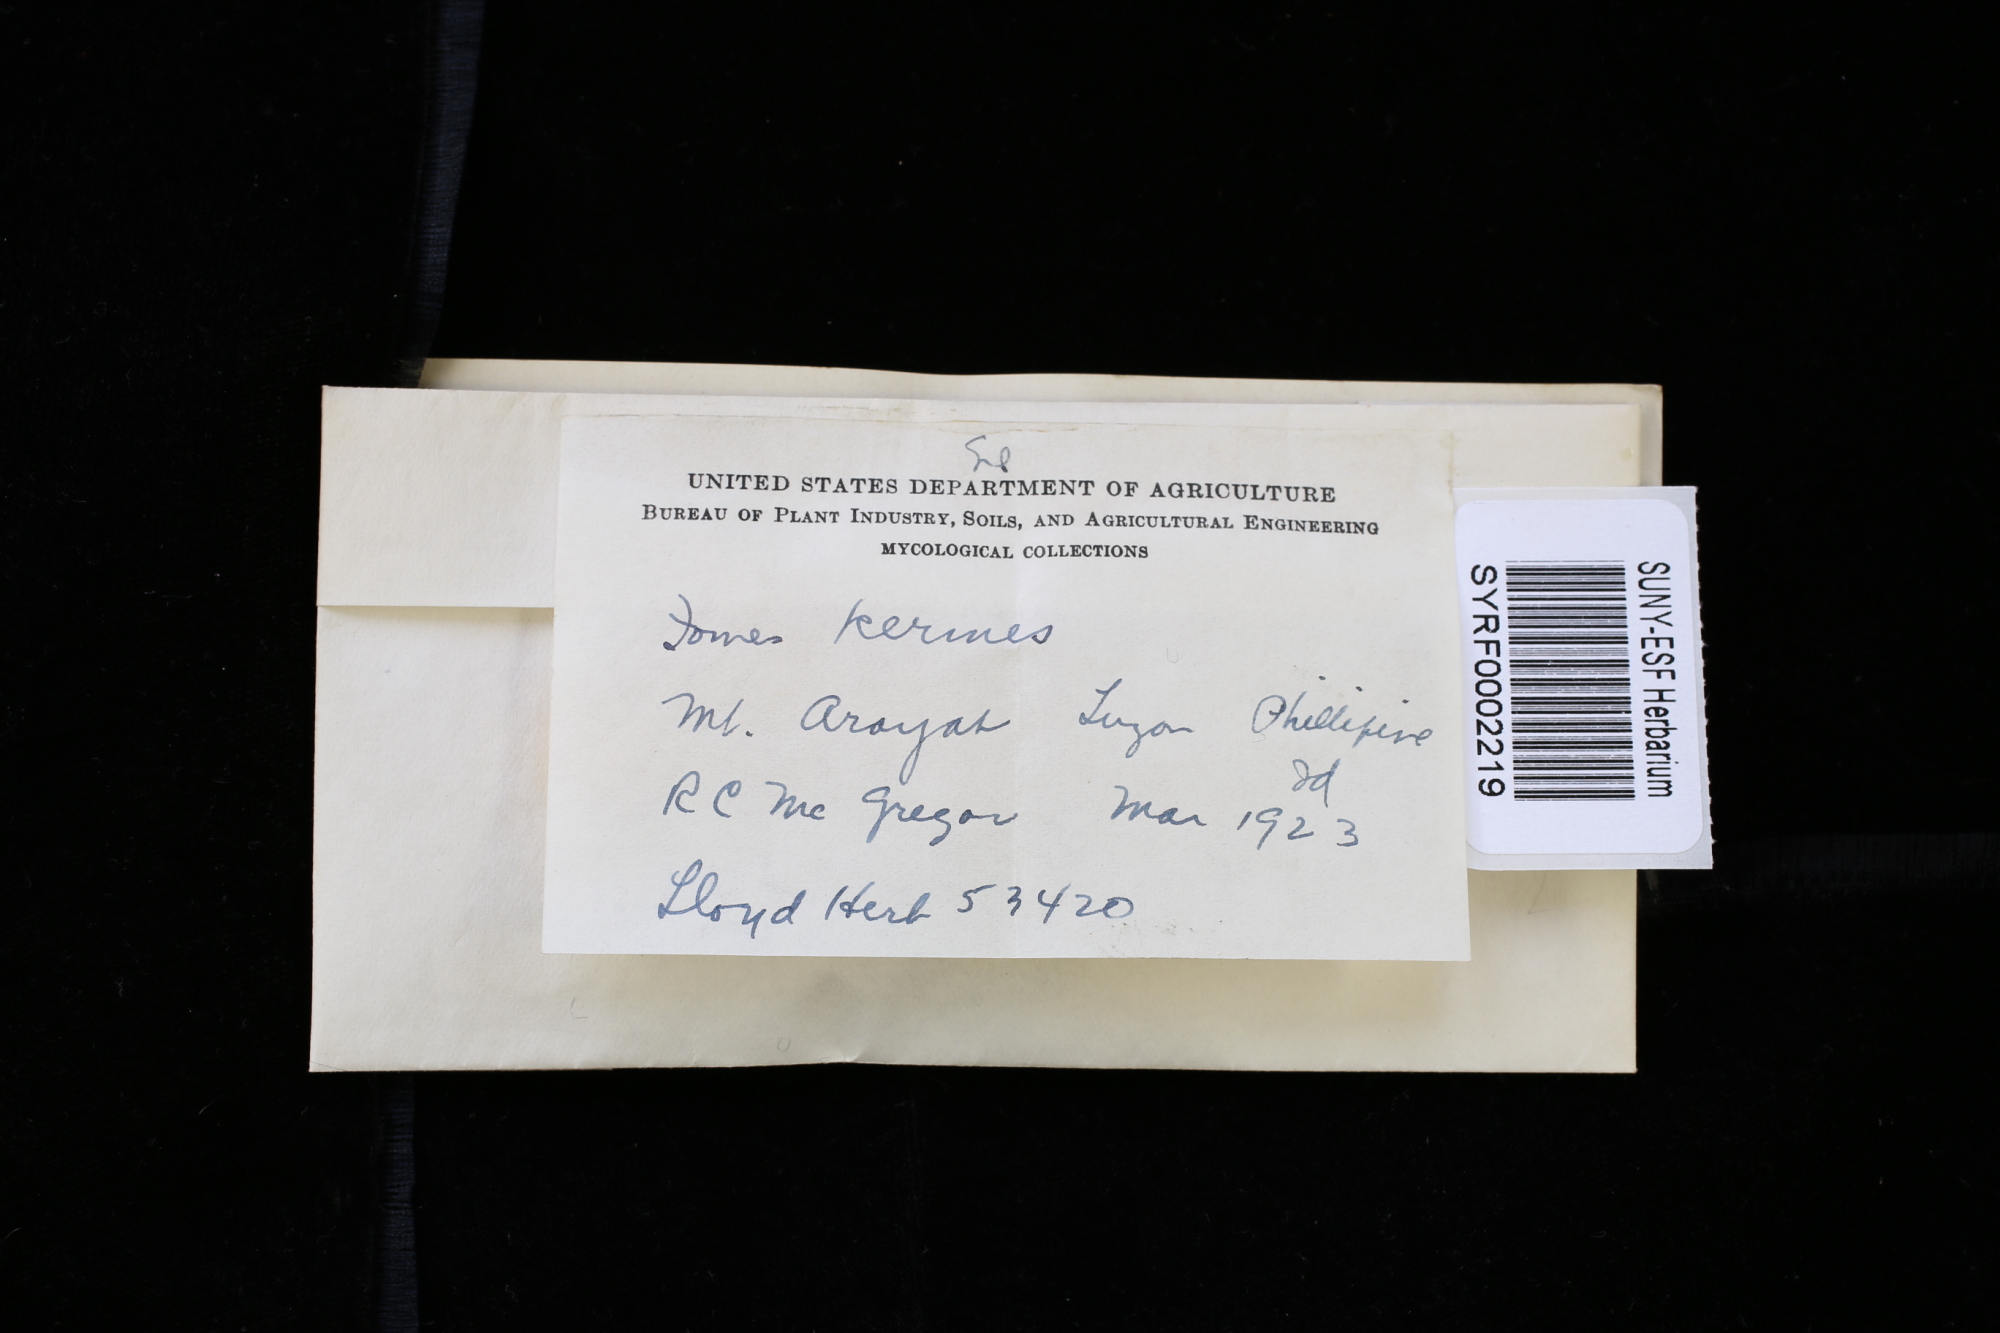 UNITED STATES DEPARTMENT OF AGRICULTURE
BUREAU OF PLANT INDUSTRY, SOILS, AND AGRICULTURAL ENGINEERING
MYCOLOGICAL COLLECTIONS
Fomes kermes
Mt. Arayat Luzon Phillipine
Id
R C Mc Gregor Mar 1923
Lloyd Herb 53420
SUNY-ESF Herbarium
SYRF0002219